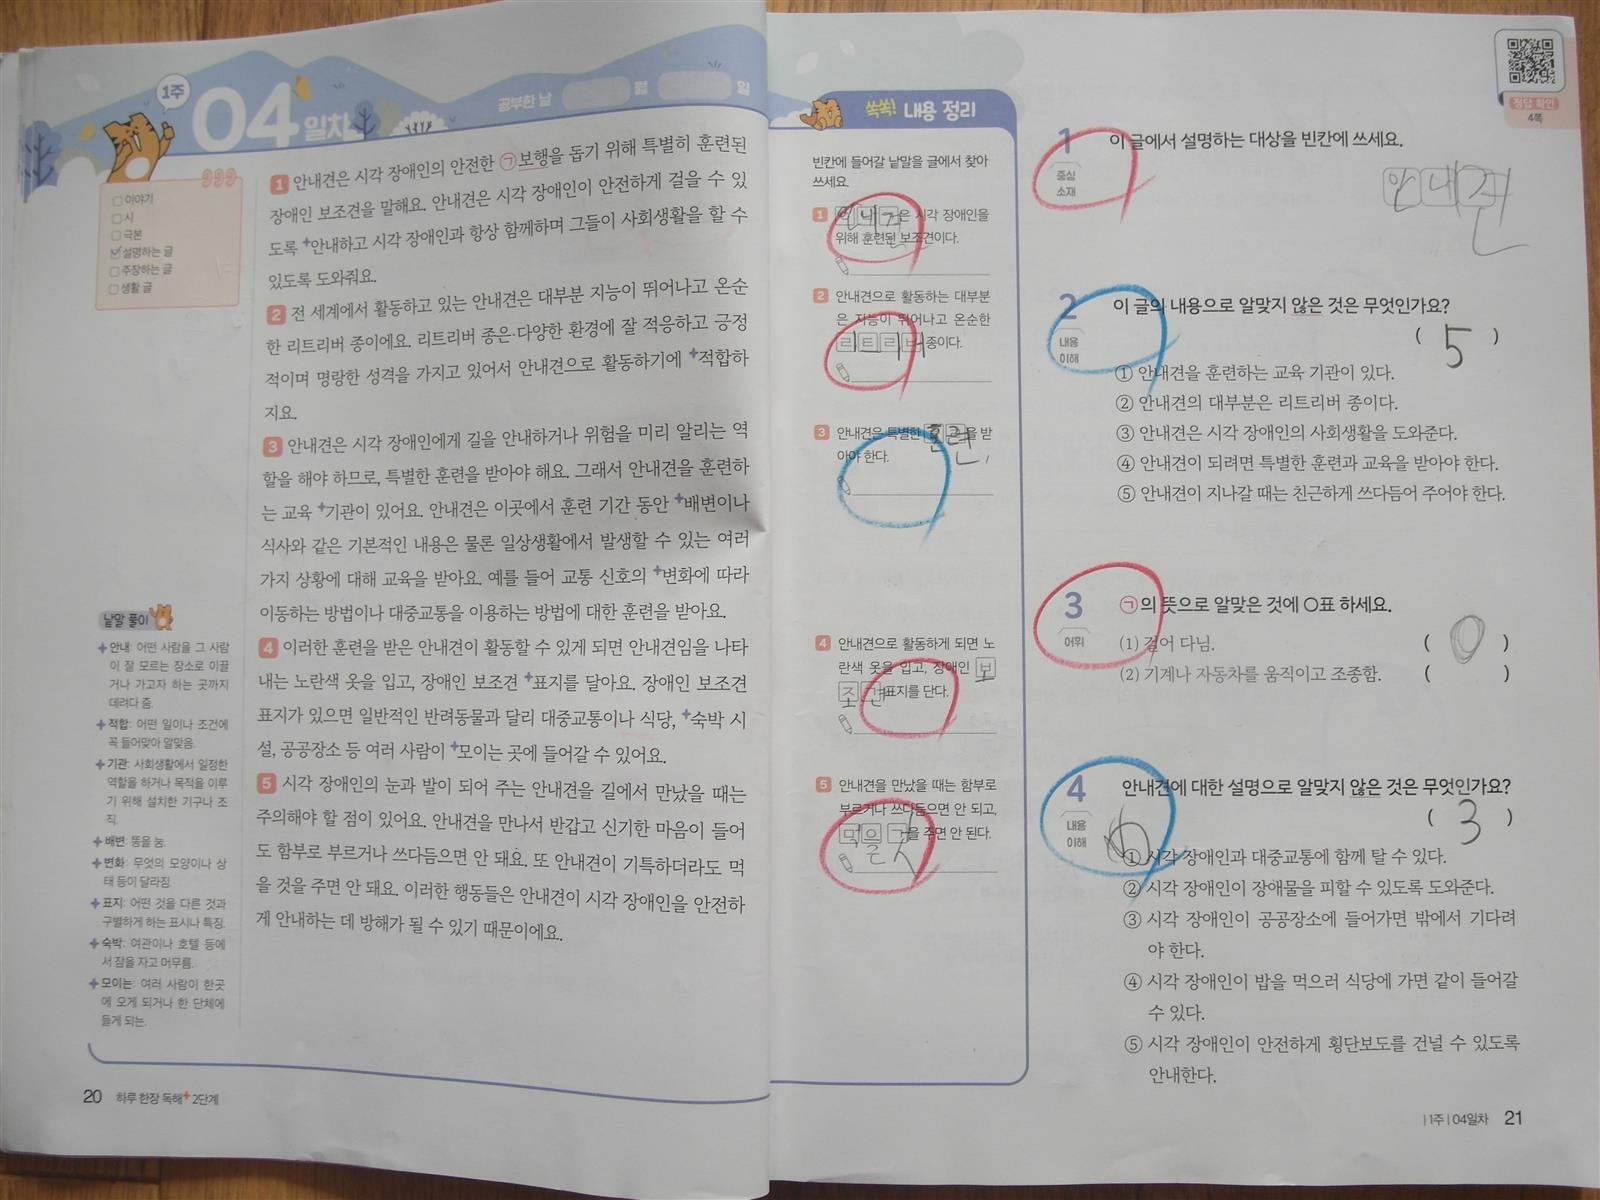 1주
04 일차
공부한 날 월 일
이야기
시
극본
설명하는 글
주장하는 글
생활 글
1 안내견은 시각 장애인의 안전한 ㉠보행을 돕기 위해 특별히 훈련된
장애인 보조견을 말해요. 안내견은 시각 장애인이 안전하게 걸을 수 있
도록 +안내하고 시각 장애인과 항상 함께하며 그들이 사회생활을 할 수
있도록 도와줘요.
2 전 세계에서 활동하고 있는 안내견은 대부분 지능이 뛰어나고 온순
한 리트리버 종이에요. 리트리버 종은 다양한 환경에 잘 적응하고 긍정
적이며 명랑한 성격을 가지고 있어서 안내견으로 활동하기에 +적합하
지요.
3 안내견은 시각 장애인에게 길을 안내하거나 위험을 미리 알리는 역
할을 해야 하므로, 특별한 훈련을 받아야 해요. 그래서 안내견을 훈련하
는 교육 +기관이 있어요. 안내견은 이곳에서 훈련 기간 동안 +배변이나
식사와 같은 기본적인 내용은 물론 일상생활에서 발생할 수 있는 여러
가지 상황에 대해 교육을 받아요. 예를 들어 교통 신호의 +변화에 따라
이동하는 방법이나 대중교통을 이용하는 방법에 대한 훈련을 받아요.
4 이러한 훈련을 받은 안내견이 활동할 수 있게 되면 안내견임을 나타
내는 노란색 옷을 입고, 장애인 보조견 +표지를 달아요. 장애인 보조견
표지가 있으면 일반적인 반려동물과 달리 대중교통이나 식당, +숙박 시
설, 공공장소 등 여러 사람이 +모이는 곳에 들어갈 수 있어요.
5 시각 장애인의 눈과 발이 되어 주는 안내견을 길에서 만났을 때는
주의해야 할 점이 있어요. 안내견을 만나서 반갑고 신기한 마음이 들어
도 함부로 부르거나 쓰다듬으면 안 돼요. 또 안내견이 기특하더라도 먹
을 것을 주면 안 돼요. 이러한 행동들은 안내견이 시각 장애인을 안전하
게 안내하는 데 방해가 될 수 있기 때문이에요.
낱말 풀이
+안내: 어떤 사람을 그 사람
이 잘 모르는 장소로 이끌
거나 가고자 하는 곳까지
데려다 줌.
+적합: 어떤 일이나 조건에
꼭 들어맞아 알맞음.
+기관: 사회생활에서 일정한
역할을 하거나 목적을 이루
기 위해 설치한 기구나 조
직.
+배변: 똥을 눔.
+변화: 무엇의 모양이나 상
태 등이 달라짐.
+표지: 어떤 것을 다른 것과
구별하게 하는 표시나 특징.
+숙박: 여관이나 호텔 등에
서 잠을 자고 머무름.
+모이는: 여러 사람이 한곳
에 오게 되거나 한 단체에
들게 되는.
20 하루 한장 독해+ 2단계
쏙쏙! 내용 정리
빈칸에 들어갈 낱말을 글에서 찾아
쓰세요.
1 안내견은 시각 장애인을
위해 훈련된 보조견이다.
2 안내견으로 활동하는 대부분
은 지능이 뛰어나고 온순한
리트리버 종이다.
3 안내견은 특별한 훈련을 받
아야 한다.
4 안내견으로 활동하게 되면 노
란색 옷을 입고, 장애인 보
조견 표지를 단다.
5 안내견을 만났을 때는 함부로
부르거나 쓰다듬으면 안 되고,
먹을것을 주면 안 된다.
정답 확인
4쪽
1 이 글에서 설명하는 대상을 빈칸에 쓰세요.
중심
소재
안내견
2 이 글의 내용으로 알맞지 않은 것은 무엇인가요?
내용
이해
( 5 )
① 안내견을 훈련하는 교육 기관이 있다.
② 안내견의 대부분은 리트리버 종이다.
③ 안내견은 시각 장애인의 사회생활을 도와준다.
④ 안내견이 되려면 특별한 훈련과 교육을 받아야 한다.
⑤ 안내견이 지나갈 때는 친근하게 쓰다듬어 주어야 한다.
3 ㉠의 뜻으로 알맞은 것에 ○표 하세요.
어휘
(1) 걸어 다님. ( O )
(2) 기계나 자동차를 움직이고 조종함. ( )
4 안내견에 대한 설명으로 알맞지 않은 것은 무엇인가요?
내용
이해
( 3 )
① 시각 장애인과 대중교통에 함께 탈 수 있다.
② 시각 장애인이 장애물을 피할 수 있도록 도와준다.
③ 시각 장애인이 공공장소에 들어가면 밖에서 기다려
야 한다.
④ 시각 장애인이 밥을 먹으러 식당에 가면 같이 들어갈
수 있다.
⑤ 시각 장애인이 안전하게 횡단보도를 건널 수 있도록
안내한다.
| 1주 | 04일차 21